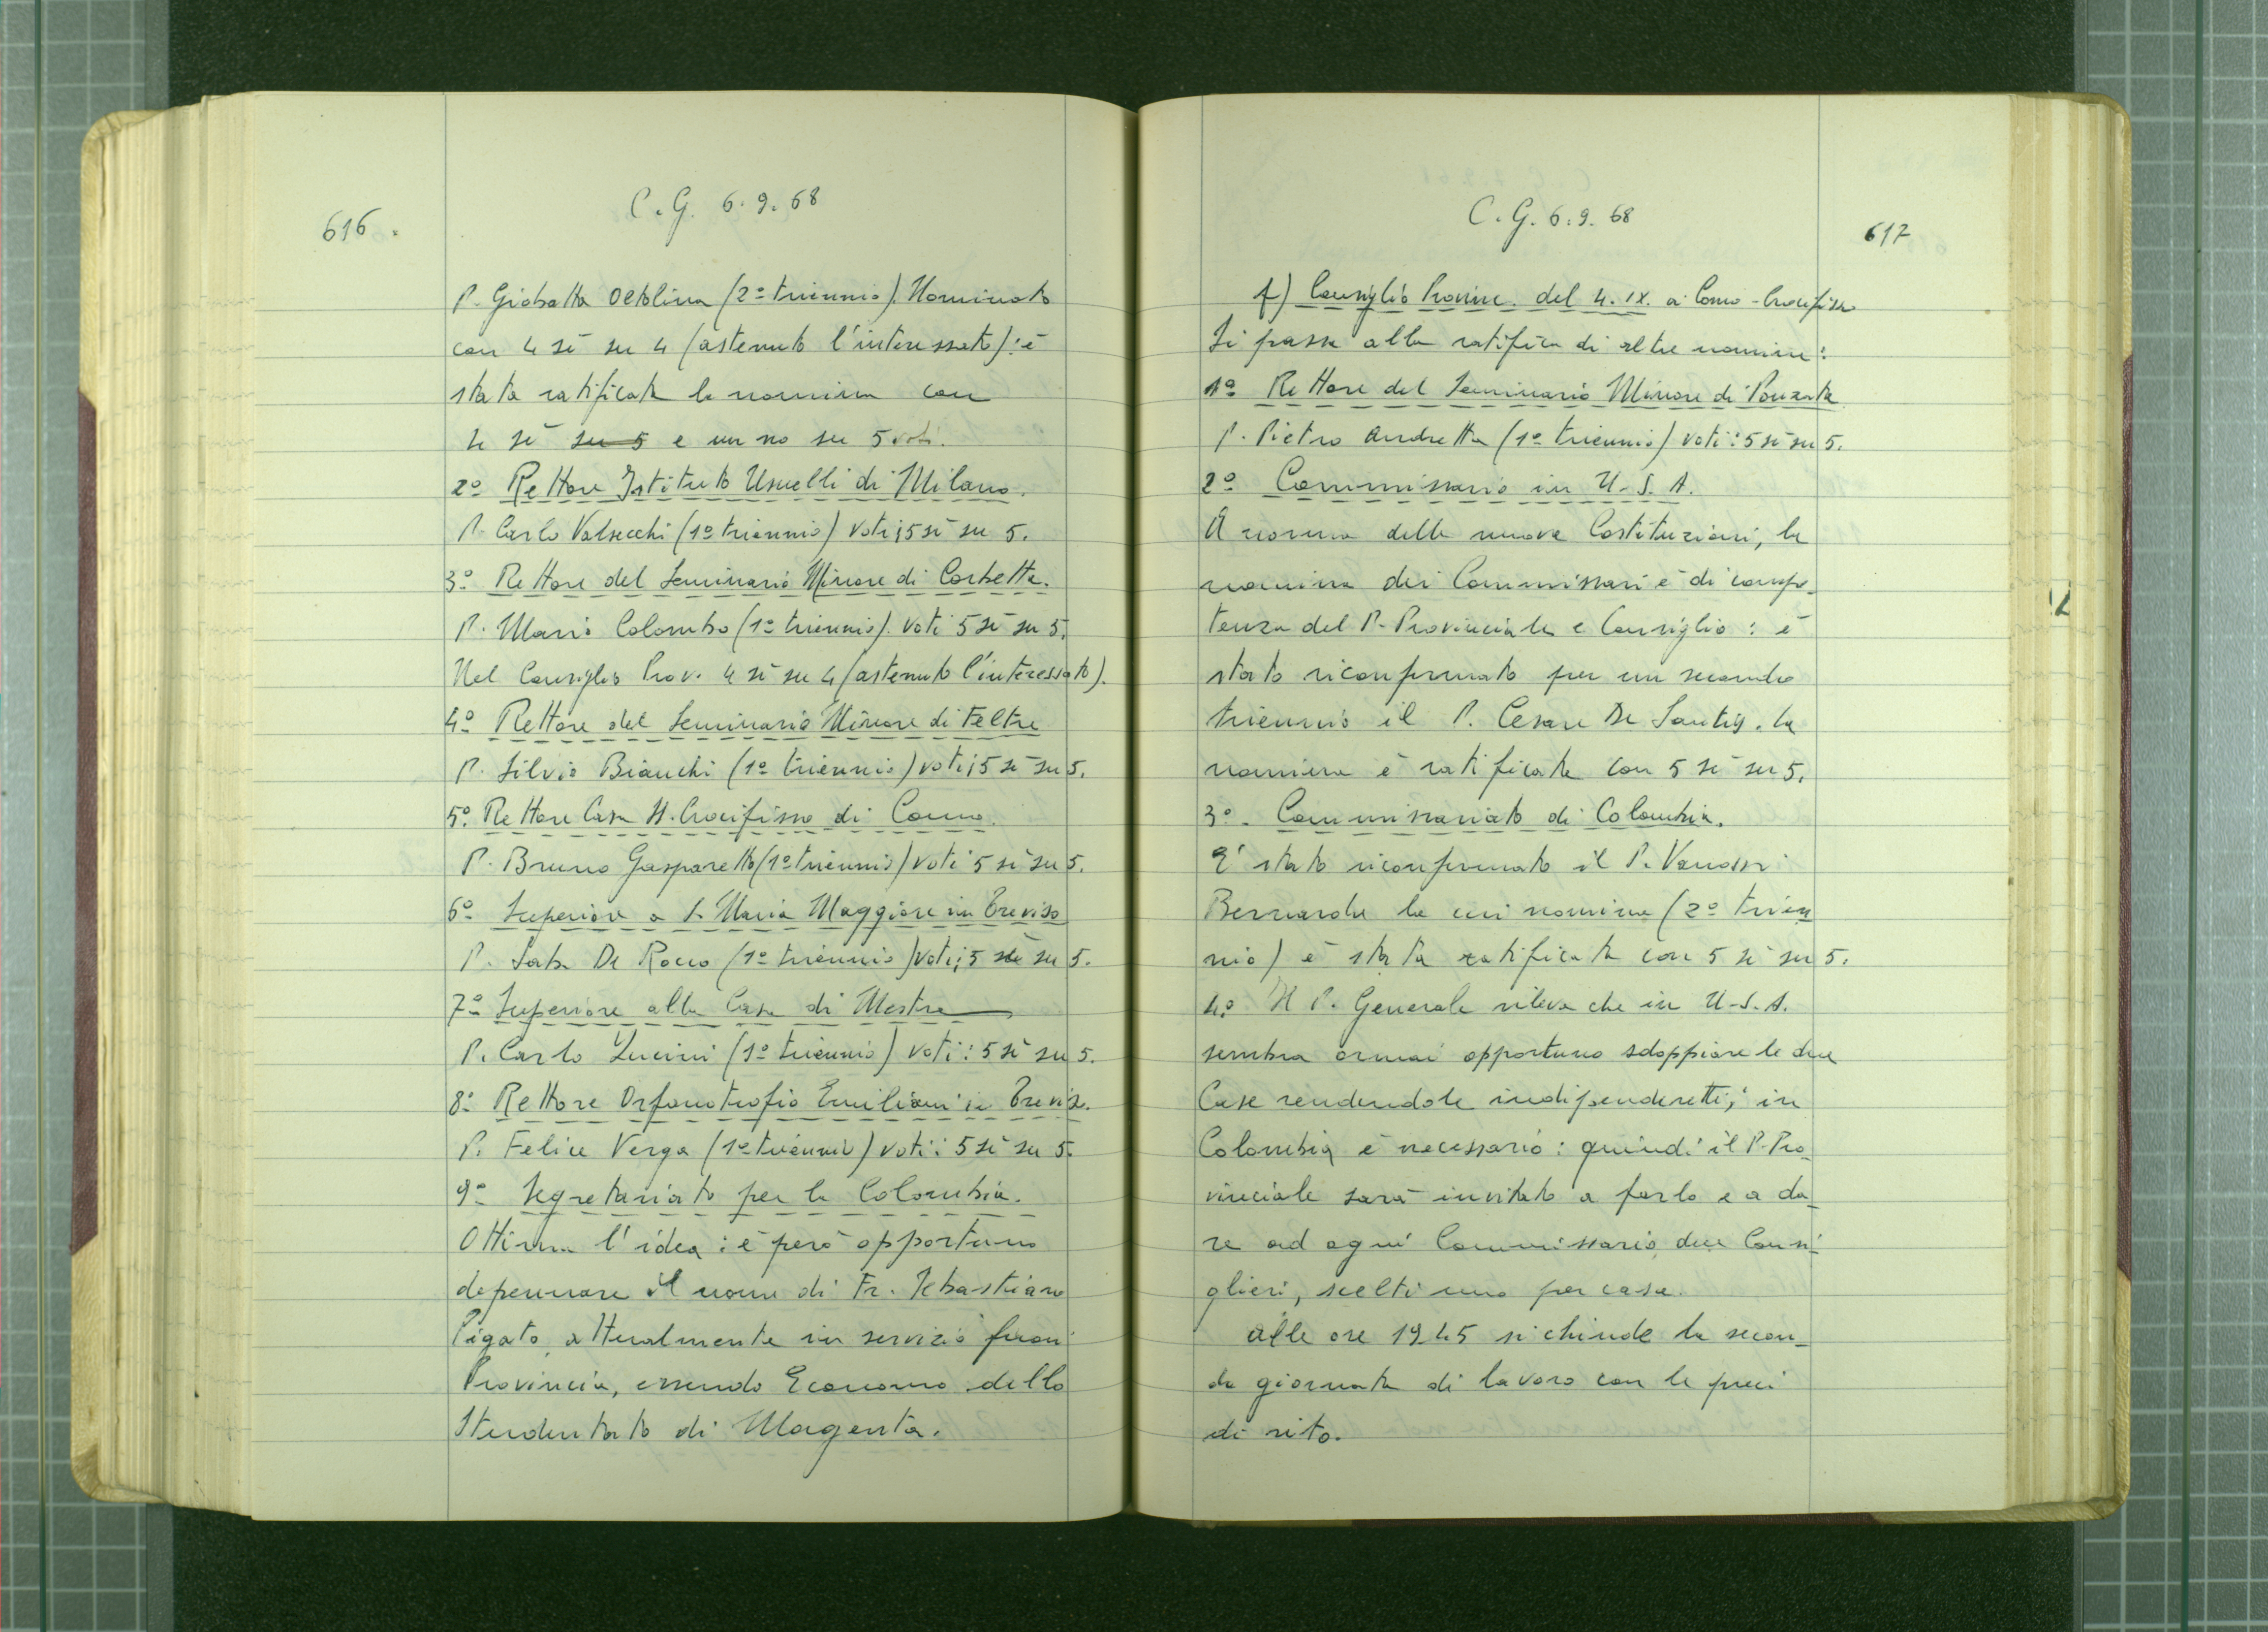 616.
C.G. 6.9.68
P. Giobatta Oltolina (2º triennio). Nominato
con 4 sì su 4 (astenuto l'interessato): è
stata ratificata la nomina con
4 sì su 5 e un no su 5 voti.
2º Rettore Istituto Usuelli di Milano.
P. Carlo Valsecchi (1º triennio) voti; 5 sì su 5.
3º Rettore del Seminario Minore di Corbetta.
P. Mario Colombo (1º triennio). voti 5 sì su 5.
Nel Consiglio Prov. 4 sì su 4 (astenuto l'interessato).
4º Rettore del Seminario Minore di Feltre
P. Silvio Bianchi (1º triennio) voti; 5 sì su 5.
5º. Rettore Casa SS. Crocifisso di Como.
P. Bruno Gasparetto (1º triennio) voti 5 sì su 5.
6º Superiore a S. Maria Maggiore in Treviso
P. Saba De Rocco (1º triennio) voti; 5 sì su 5.
7º Superiore alla Casa di Mestre
P. Carlo Lucini (1º triennio) voti: 5 sì su 5.
8º Rettore Orfanotrofio Emiliani in Treviso.
P. Felice Verga (1º triennio) voti: 5 sì su 5.
9º Segretariato per la Colombia.
Ottima l'idea: è però opportuno
depennare il nome di Fr. Sebastiano
Pigato, attualmente in servizio fuori
Provincia, essendo Economo dello
Studentato di Magenta.
C.G. 6.9.68
617
f) Consiglio Provinc. del 4.IX. a Como-Crocifisso
Si passa alla ratifica di altre nomine:
1º Rettore del Seminario Minore di Ponzate
P. Pietro Andretta (1º triennio) voti: 5 sì su 5.
2º Commissario in U.S.A.
A norma delle nuove Costituzioni, la
nomina dei Commissari è di compe-
tenza del P. Provinciale e Consiglio: è
stato riconfermato per un secondo
triennio il P. Cesare De Santis. la
nomina è ratificata con 5 sì su 5.
3º. Commissariato di Colombia.
E' stato riconfermato il P. Vanossi
Bernardo la cui nomina (2º trien
nio) è stata ratificata con 5 sì su 5.
4º Il P. Generale rileva che in U.S.A.
sembra ormai opportuno sdoppiare le due
Case rendendole indipendenti; in
Colombia è necessario: quindi il P. Pro-
vinciale sarà invitato a farlo e a da-
re ad ogni Commissario due Consi-
glieri, scelti uno per casa.
Alle ore 19.45 si chiude la secon-
da giornata di lavoro con le preci
di rito.